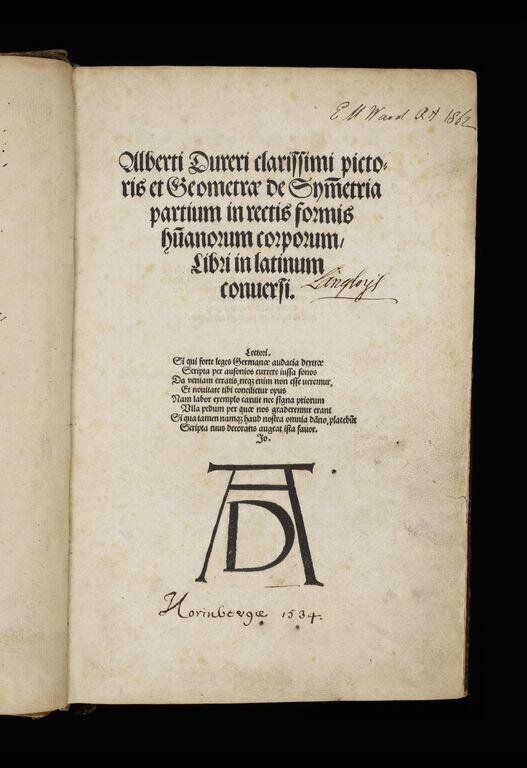 E M Ward Oct 1862
Alberti Dureri clarissimi picto-
ris et Geometræ de Sym̄etria
partium in rectis formis
hūanorum corporum/
Libri in latinum
conuersi.
Langlois
Lectori.
Si qui forte leges Germanæ audacia dextræ
Scripta per ausonios currere iussa sonos
Da veniam erratis, neqꝫ enim non esse veremur,
Et nouitate tibi concilietur opus
Nam labor exemplo caruit nec signa priorum
Vlla pedum per quæ nos graderemur erant
Si qua tamen namqꝫ haud nostra omnia dāno, placebūt
Scripta tuus decorans augeat ista fauor.
Jo.
AD
Norinbergæ 1534.